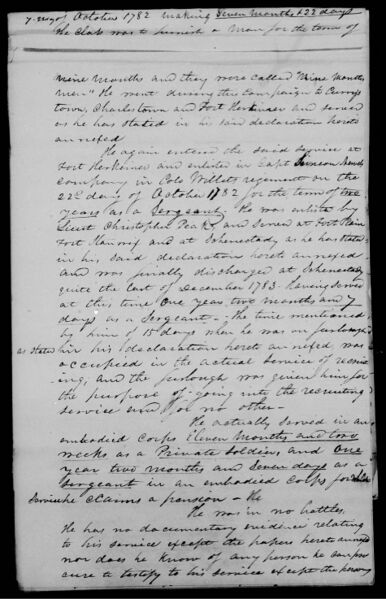 7. day of October 1782 making Seven Months & 22 days
The Class was to furnish a Man for the term of
nine months and they were called "Nine Months
men" He went during the campaign to Currys
town, Charlestown and Fort Herkimer and served
as he has stated in his said declaration hereto
annexed
He again entered the said service at
Fort Herkimer and enlisted in Capt
company in Cols Willets regiment on the
22d day of October 1782 for the term of two
years as a Sergeant. He was enlisted by
Lieut Christopher and Served at Fort Plain
Fort and at Schenectady as he has stated
in his said declaration hereto annexed
and was finally discharged at Schenectady
quite the last of December 1783. Having Served
at this time One year two months and 7
days as a Sergeant. The time mentioned
by him of 15 days when he was on furlough
as stated in his declaration hereto annexed was
occupied in the actual service of recruit
ing, and the furlough was given him for
the purpose of going into the recruiting
service and for no other
He actually served in an
embodied corps Eleven Months and two
weeks as a Private Soldier, and One
year two months and Seven days as a
Sergeant in an embodied corps for which
Service he claims a pension
He was in no battles.
He has no documentary evidence relating
to his service except the papers hereto annexed
nor does he know of any person he can pro
cure to testify to his service except the persons